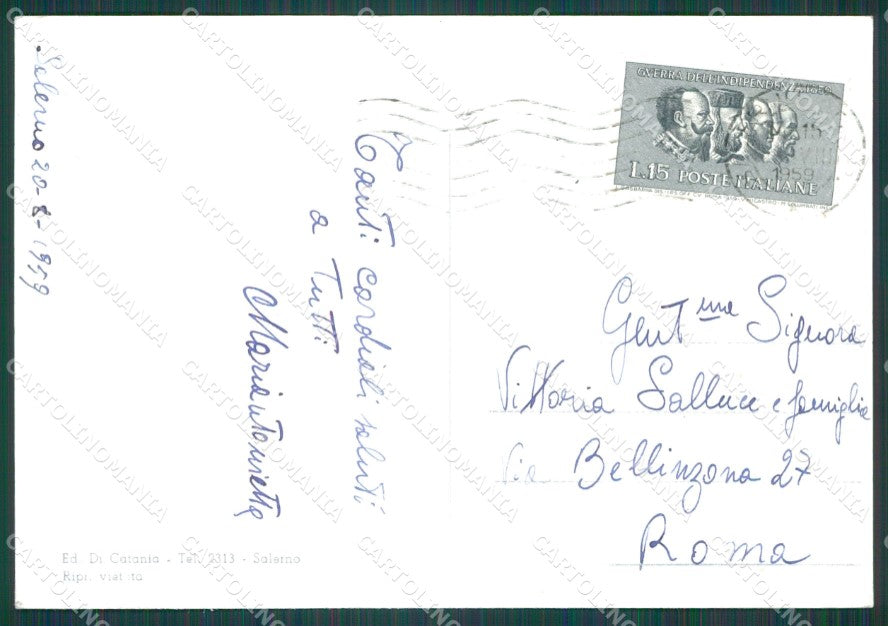 Salerno 20-8-1959
Tanti cordiali saluti
a Tutti
Mariantonietta
GVERRA DELL'INDIPENDENZA 1859
L.15 POSTE ITALIANE
1959
Gent.ma Signora
Vittoria Salluce e famiglia
Via Bellinzona 27
Roma
Ed. Di Catania - Tel. 2313 - Salerno
Ripr. vietata
CARTOLINOMANIA